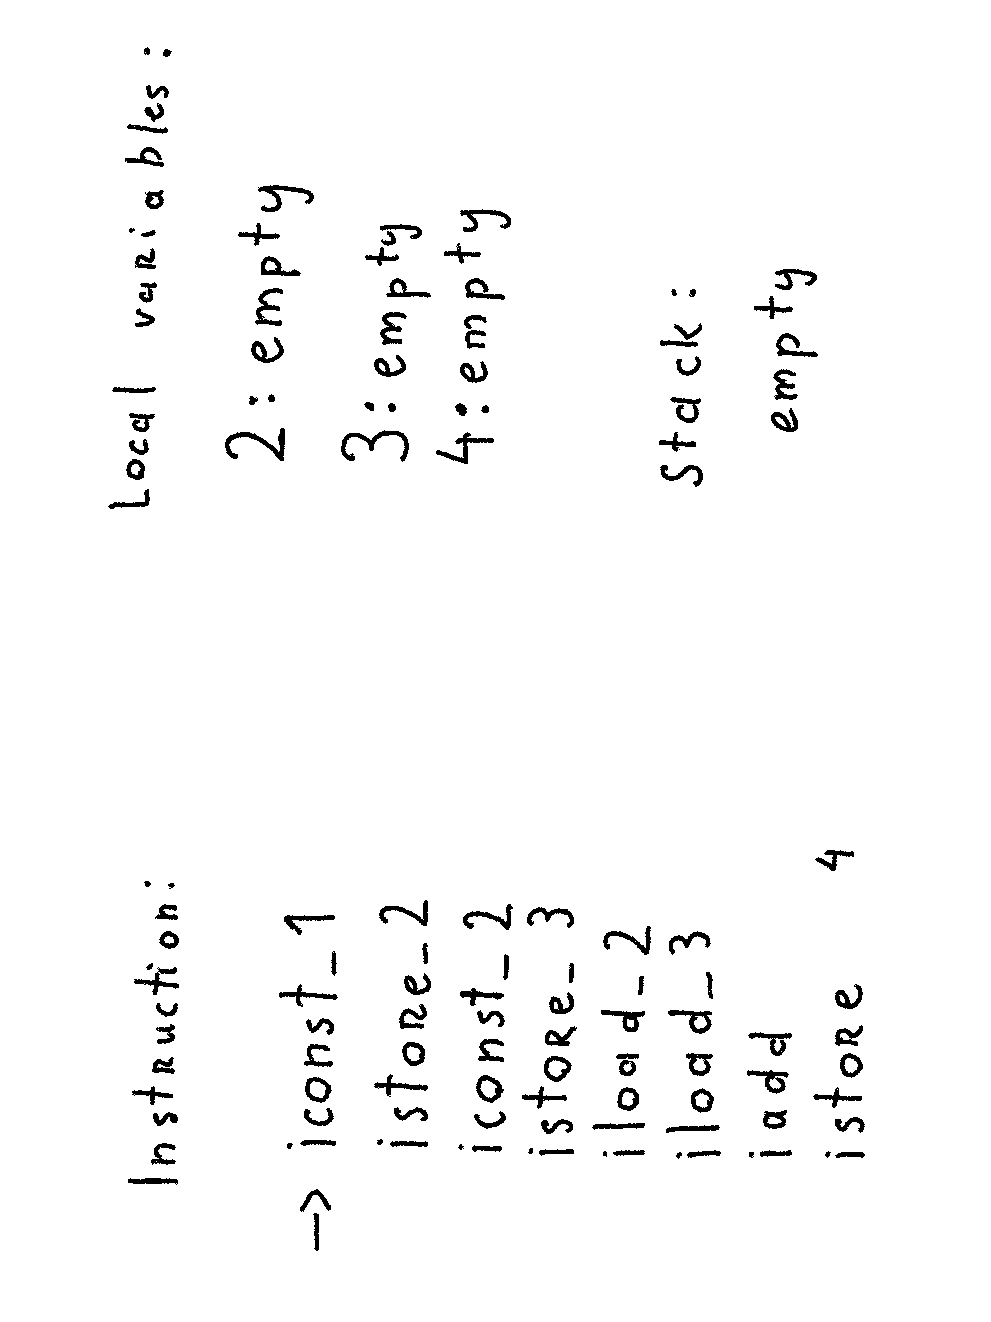 Instruction:
→ iconst_1
istore_2
iconst_2
istore_3
iload_2
iload_3
iadd
istore 4
Local variables:
2: empty
3: empty
4: empty
Stack:
empty